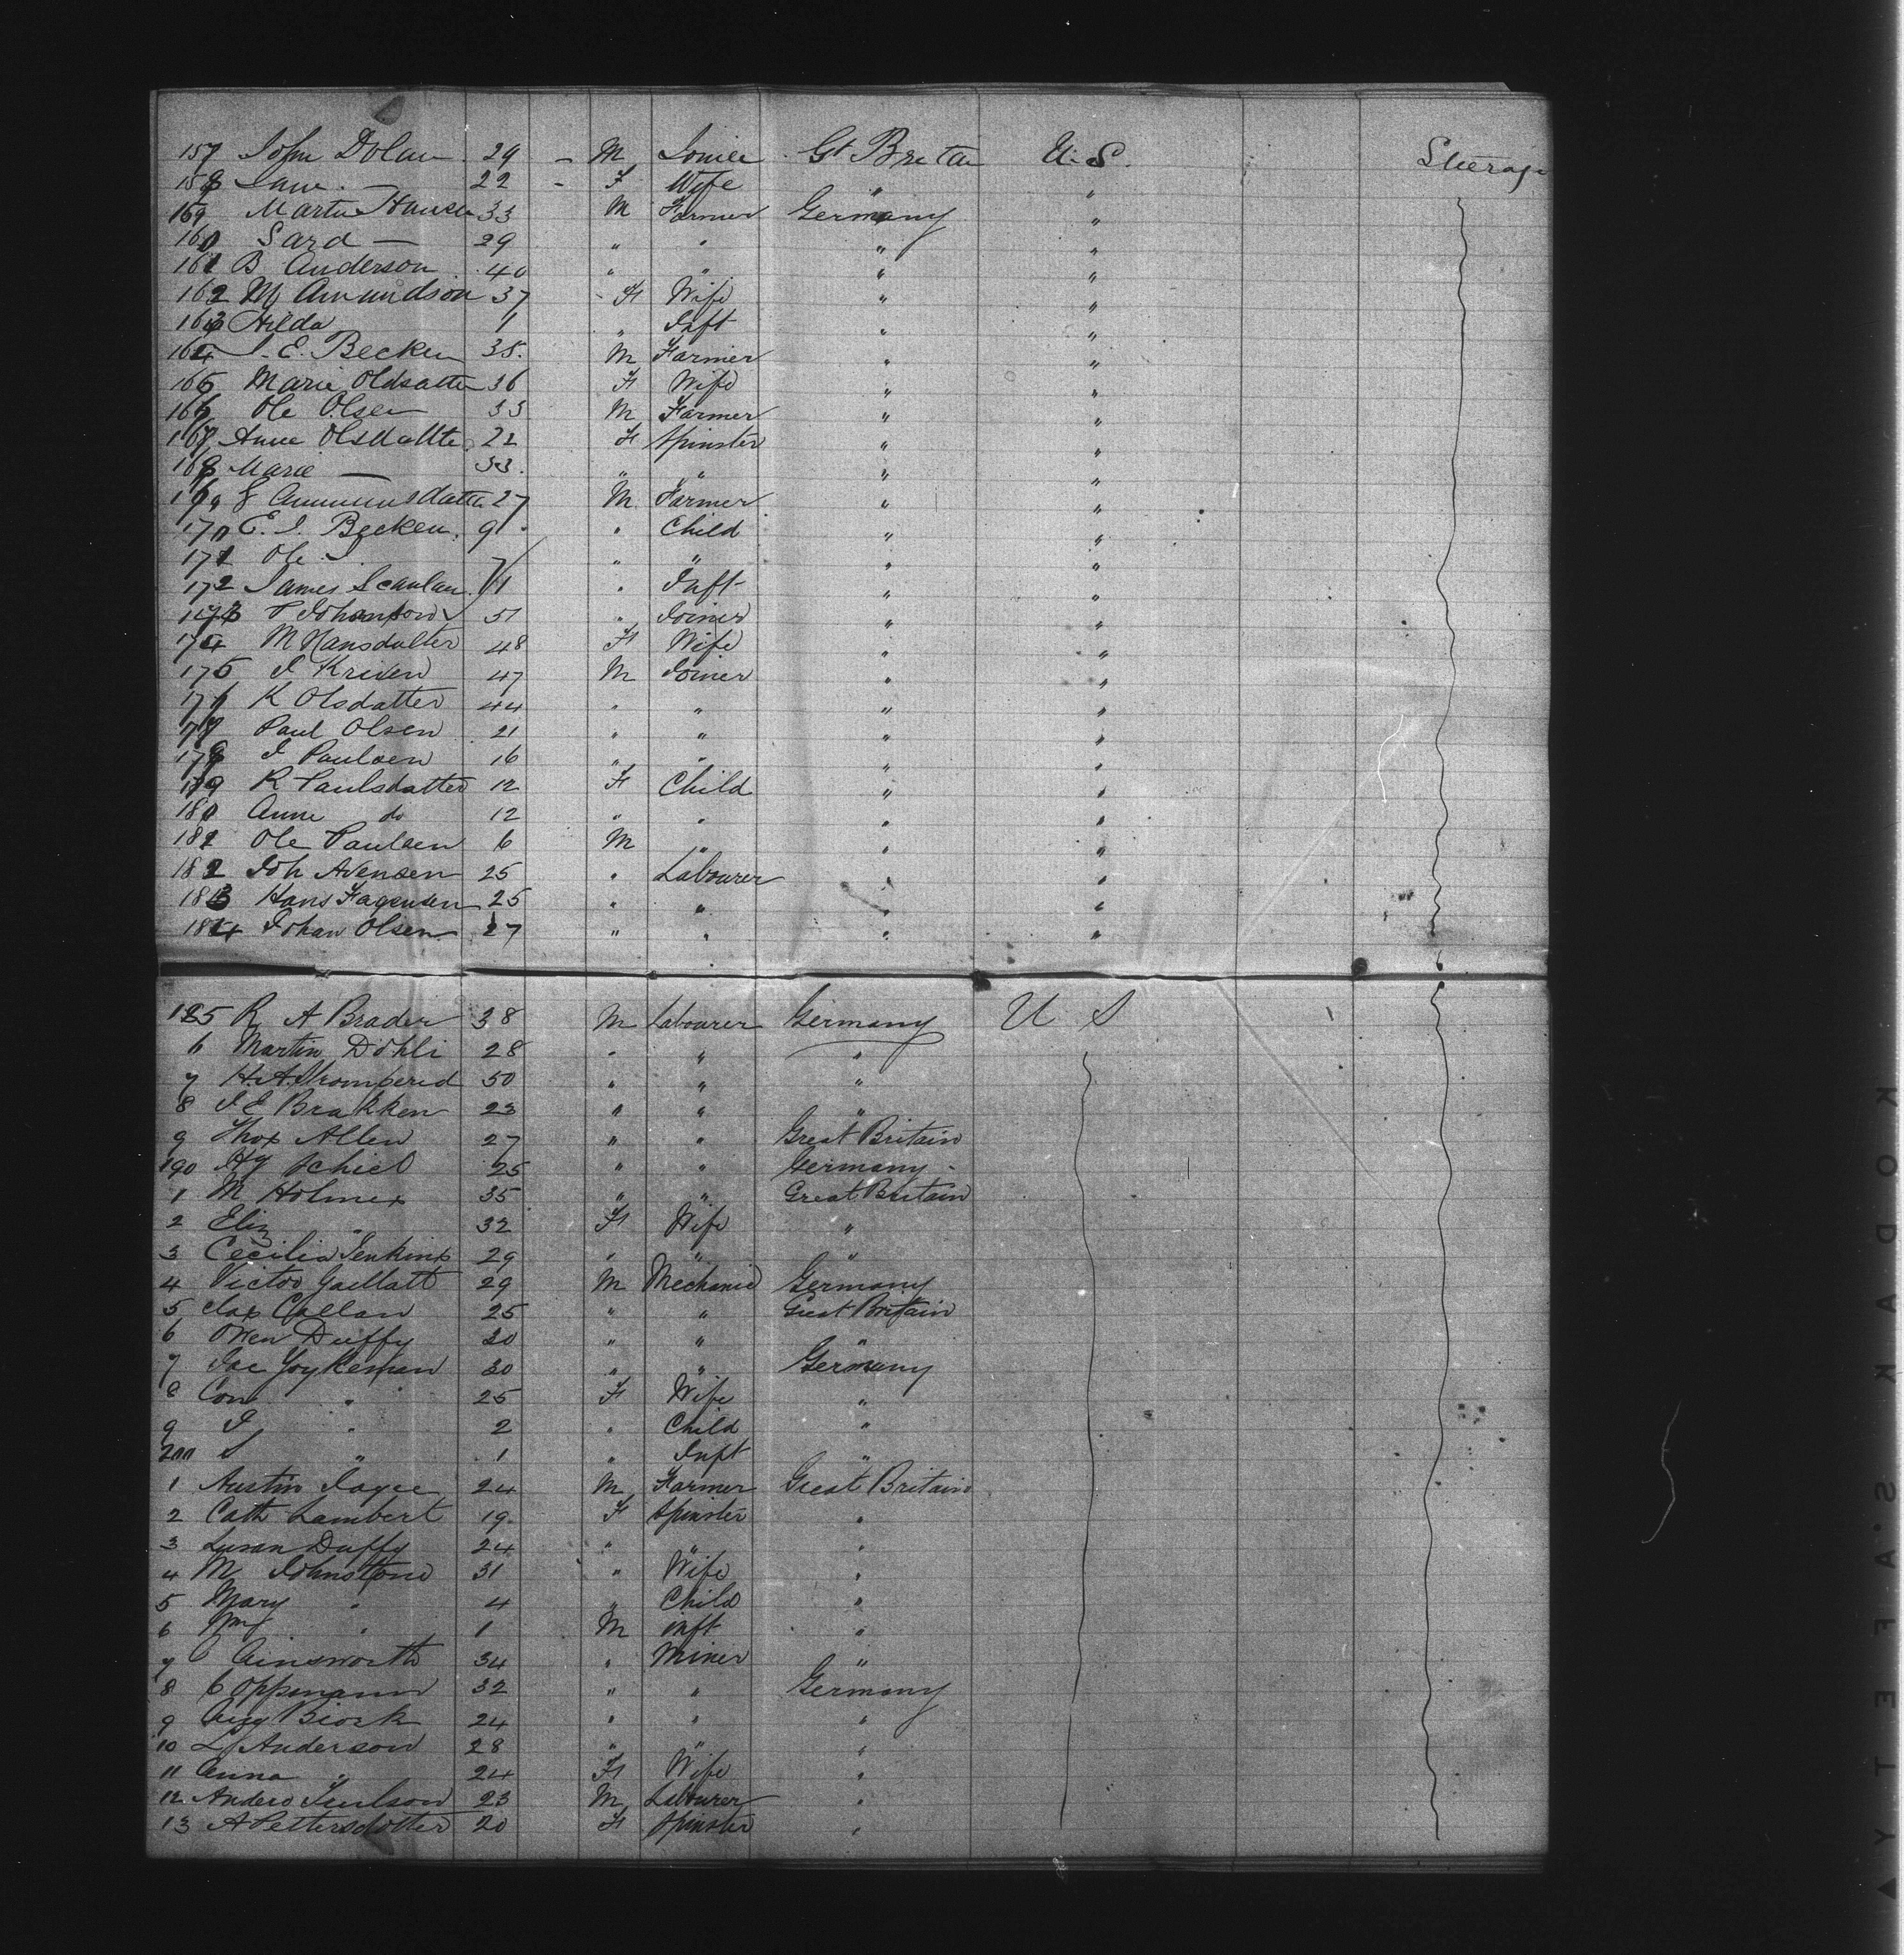 157 John Dolan 29 - M Joiner Gt Britain U.S. Steerage
158 Jane — 22 - F Wife " "
159 Martin Hansen 33 M Farmer Germany "
160 Sard — 29 " " " "
161 B Anderson 40 " " " "
162 M Amundson 37 - F Wife " "
163 Hilda 1 " Inft " "
164 J. E. Becken 35. M Farmer " "
165 Marie Oldsatter 36 F Wife " "
166 Ole Olsen 33 M Farmer " "
167 Anne Olsdatte 22 F Spinster " "
168 Marie — 33. " " " "
169 27 M Farmer " "
170 E. J. Becken. 9 " Child " "
171 Ole J. 7 " " " "
172 James Scanlan 1 " Inft " "
173 P Johanson 51 " Joiner " "
174 M Hansdatter 48 F Wife " "
175 J Krisen 47 M Joiner " "
176 K Olsdatter 44 " " " "
177 Paul Olsen 21 " " " "
178 J Paulsen 16 " " " "
179 R Paulsdatter 12 F Child " "
180 Anne do 12 " " " "
181 Ole Paulsen 6 M " " "
182 Joh Avensen 25 " Labourer " "
183 Hans Fagensen 25 " " " "
184 Johan Olsen 27 " " " "
185 R A Brader 38 M Labourer Germany U S
6 Martin Dohli 28 " " "
7 H. A. Stromperud 50 " " "
8 J E Brakken 23 " " "
9 Thos Allen 27 " " Great Britain
190 Hy Schiel 25 " " Germany -
1 M Holmes 35 " " Great Britain
2 Eliz " 32 F Wife "
3 Cecilia Jenkins 29 " " "
4 Victor Gaillatt 29 M Mechanic Germany
5 Chas Callan 25 " " Great Britain
6 Owen Duffy 20 " " "
7 Jac 30 " " Germany
8 Con " 25 F Wife "
9 J " 2 " Child "
200 S " 1 " Inft "
1 Austin Joyce 24 M Farmer Great Britain
2 Cath Lambert 19 F Spinster "
3 Susan Duffy 24 " " "
4 M Johnstone 31 " Wife "
5 Mary " 4 " Child "
6 Wm " 1 M inft "
7 Ainsworth 34 " Miner "
8 C Oppmann 32 " " Germany
9 Aug Biork 24 " " "
10 L Anderson 28 " " "
11 Anna " 24 F Wife "
12 Anders 23 M Labourer "
13 A Pettersdotter 20 F Spinster "
KODAK SAFETY